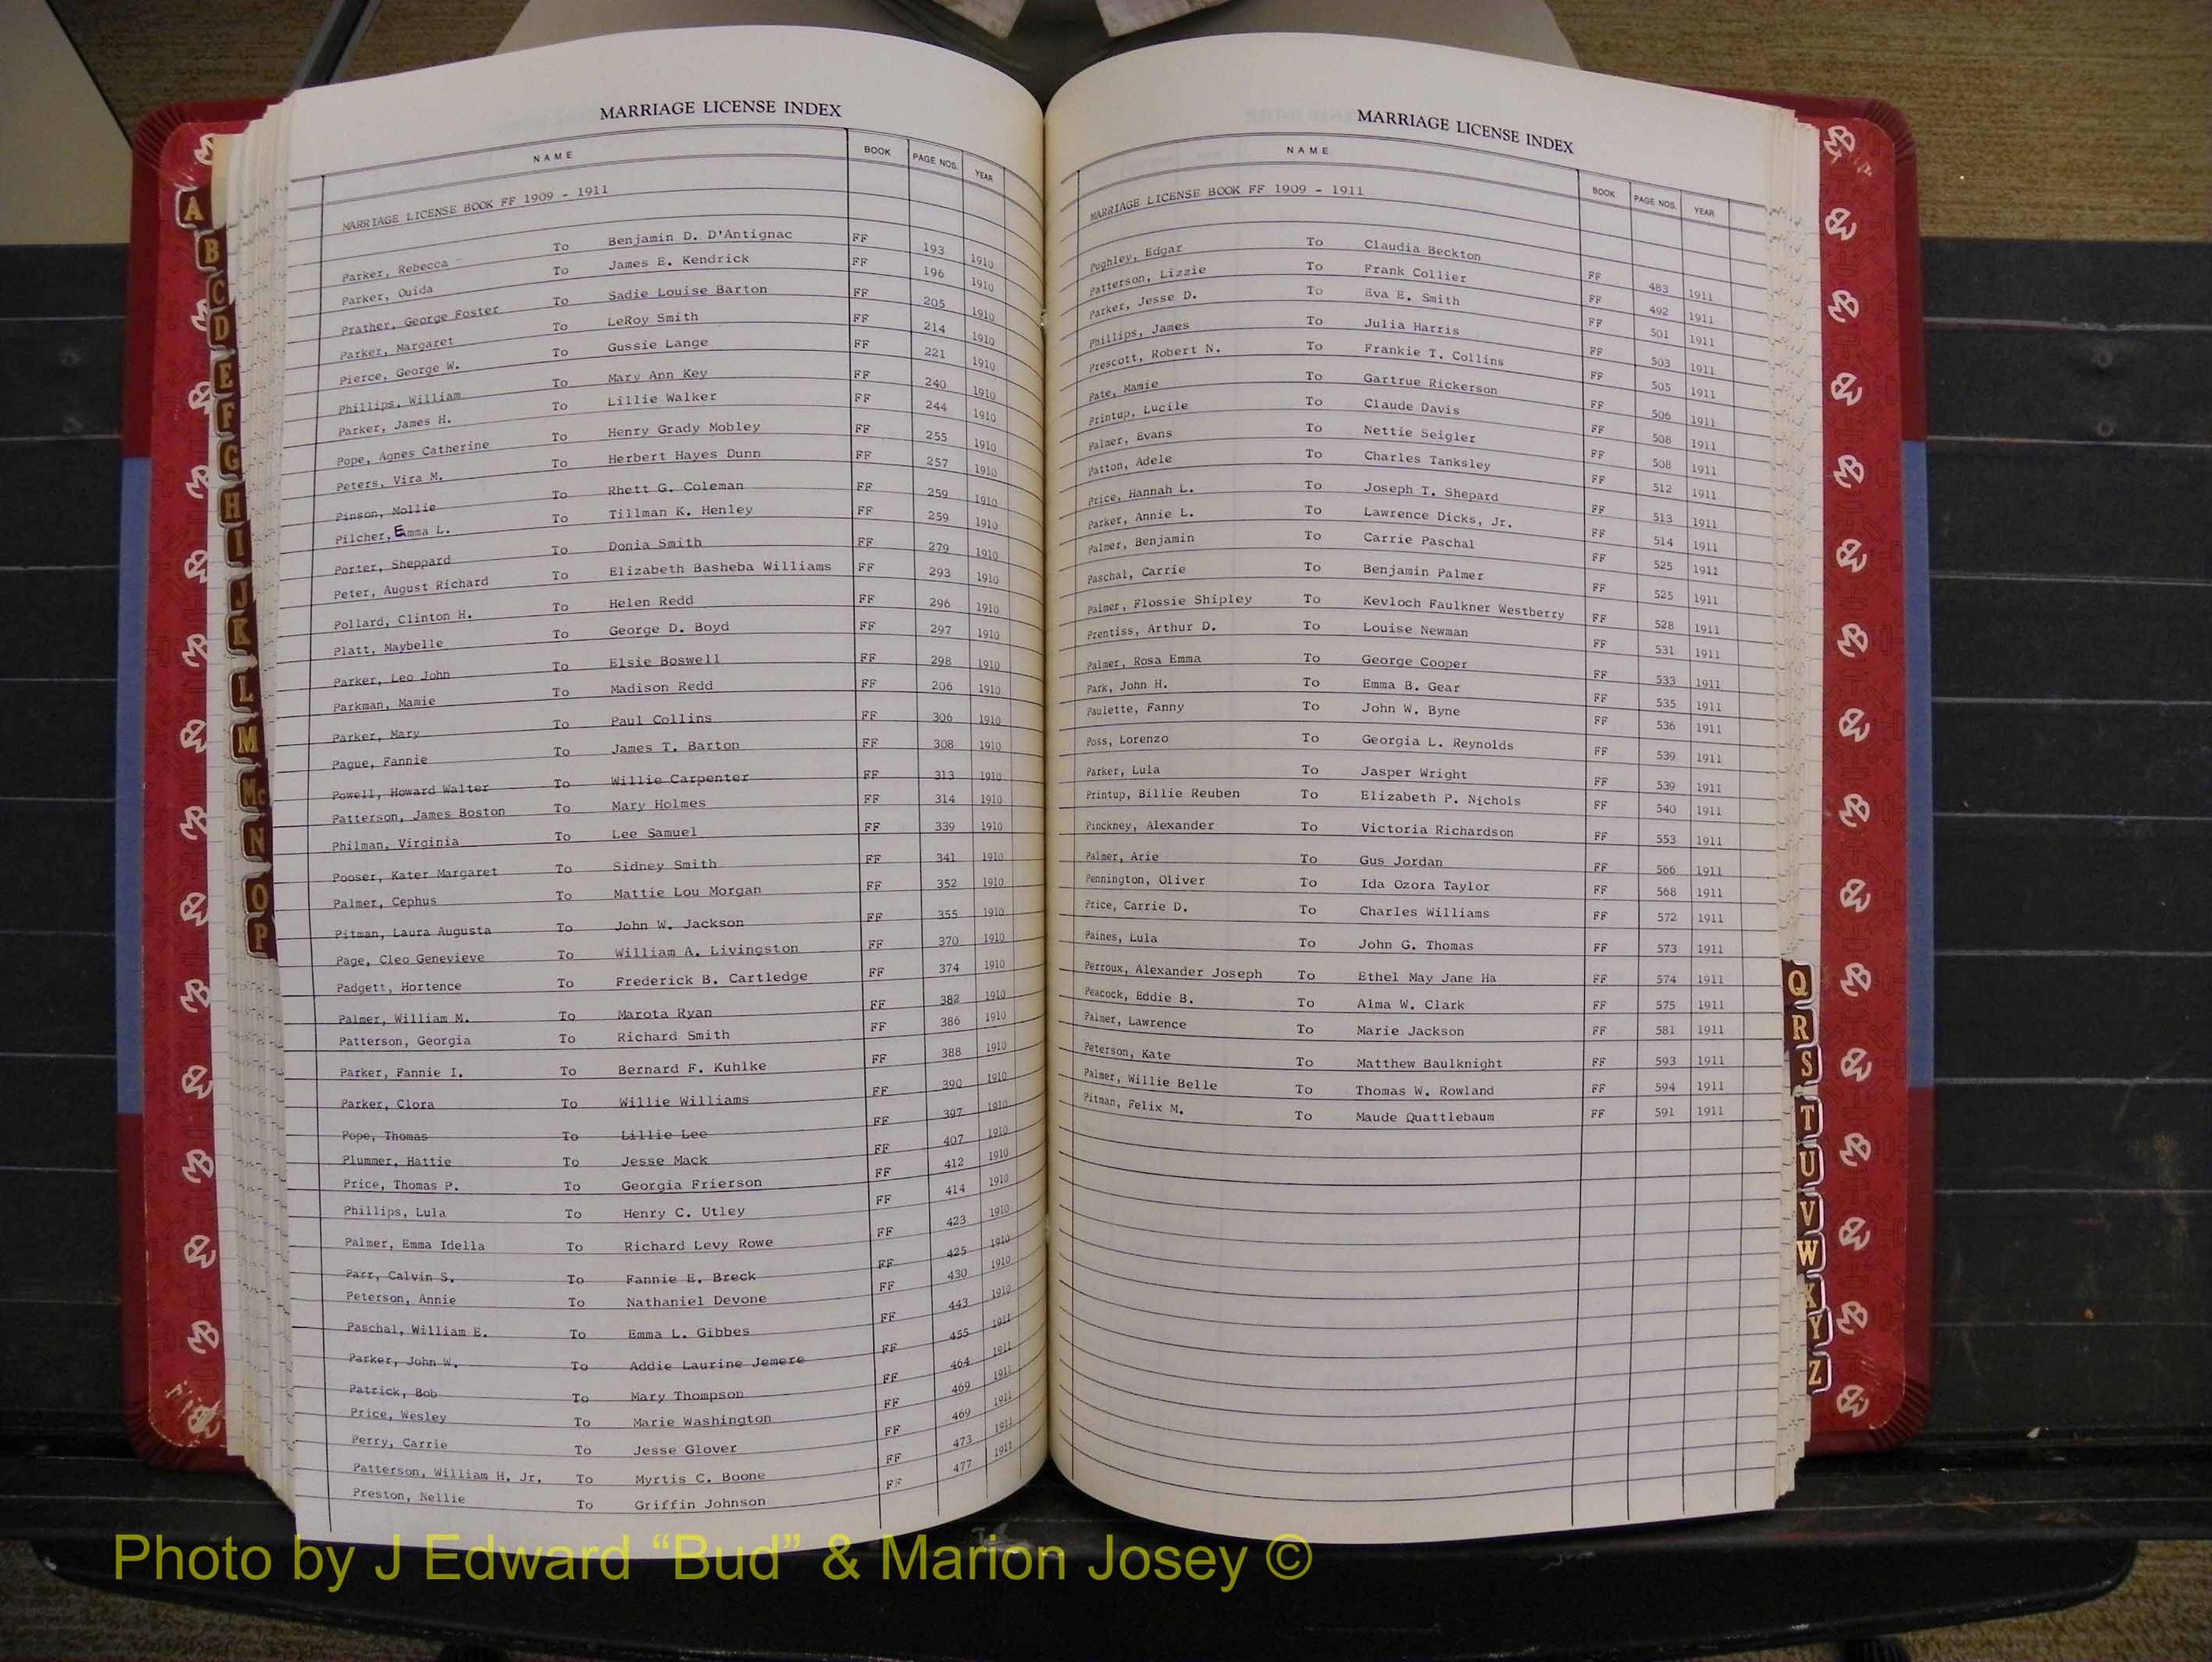 MARRIAGE LICENSE INDEX
NAME BOOK PAGE NOS. YEAR
MARRIAGE LICENSE BOOK FF 1909 - 1911
Parker, Rebecca To Benjamin D. D'Antignac FF 193 1910
Parker, Ouida To James E. Kendrick FF 196 1910
Prather, George Foster To Sadie Louise Barton FF 205 1910
Parker, Margaret To LeRoy Smith FF 214 1910
Pierce, George W. To Gussie Lange FF 221 1910
Phillips, William To Mary Ann Key FF 240 1910
Parker, James H. To Lillie Walker FF 244 1910
Pope, Agnes Catherine To Henry Grady Mobley FF 255 1910
Peters, Vira M. To Herbert Hayes Dunn FF 257 1910
Pinson, Mollie To Rhett G. Coleman FF 259 1910
Pilcher, Emma L. To Tillman K. Henley FF 259 1910
Porter, Sheppard To Donia Smith FF 279 1910
Peter, August Richard To Elizabeth Basheba Williams FF 293 1910
Pollard, Clinton H. To Helen Redd FF 296 1910
Platt, Maybelle To George D. Boyd FF 297 1910
Parker, Leo John To Elsie Boswell FF 298 1910
Parkman, Mamie To Madison Redd FF 206 1910
Parker, Mary To Paul Collins FF 306 1910
Pague, Fannie To James T. Barton FF 308 1910
Powell, Howard Walter To Willie Carpenter FF 313 1910
Patterson, James Boston To Mary Holmes FF 314 1910
Philman, Virginia To Lee Samuel FF 339 1910
Pooser, Kater Margaret To Sidney Smith FF 341 1910
Palmer, Cephus To Mattie Lou Morgan FF 352 1910
Pitman, Laura Augusta To John W. Jackson FF 355 1910
Page, Cleo Genevieve To William A. Livingston FF 370 1910
Padgett, Hortence To Frederick B. Cartledge FF 374 1910
Palmer, William M. To Marota Ryan FF 382 1910
Patterson, Georgia To Richard Smith FF 386 1910
Parker, Fannie I. To Bernard F. Kuhlke FF 388 1910
Parker, Clora To Willie Williams FF 390 1910
Pope, Thomas To Lillie Lee FF 397 1910
Plummer, Hattie To Jesse Mack FF 407 1910
Price, Thomas P. To Georgia Frierson FF 412 1910
Phillips, Lula To Henry C. Utley FF 414 1910
Palmer, Emma Idella To Richard Levy Rowe FF 423 1910
Parr, Calvin S. To Fannie E. Breck FF 425 1910
Peterson, Annie To Nathaniel Devone FF 430 1910
Paschal, William E. To Emma L. Gibbes FF 443 1910
Parker, John W. To Addie Laurine Jemere FF 455 1911
Patrick, Bob To Mary Thompson FF 464 1911
Price, Wesley To Marie Washington FF 469 1911
Perry, Carrie To Jesse Glover FF 469 1911
Patterson, William H. Jr. To Myrtis C. Boone FF 473 1911
Preston, Nellie To Griffin Johnson FF 477 1911
MARRIAGE LICENSE INDEX
NAME BOOK PAGE NOS. YEAR
MARRIAGE LICENSE BOOK FF 1909 - 1911
Pughley, Edgar To Claudia Beckton FF 483 1911
Patterson, Lizzie To Frank Collier FF 492 1911
Parker, Jesse D. To Eva E. Smith FF 501 1911
Phillips, James To Julia Harris FF 503 1911
Prescott, Robert N. To Frankie T. Collins FF 505 1911
Pate, Mamie To Gartrue Rickerson FF 506 1911
Printup, Lucile To Claude Davis FF 508 1911
Palmer, Evans To Nettie Seigler FF 508 1911
Patton, Adele To Charles Tanksley FF 512 1911
Price, Hannah L. To Joseph T. Shepard FF 513 1911
Parker, Annie L. To Lawrence Dicks, Jr. FF 514 1911
Palmer, Benjamin To Carrie Paschal FF 525 1911
Paschal, Carrie To Benjamin Palmer FF 525 1911
Palmer, Flossie Shipley To Kevloch Faulkner Westberry FF 528 1911
Prentiss, Arthur D. To Louise Newman FF 531 1911
Palmer, Rosa Emma To George Cooper FF 533 1911
Park, John H. To Emma B. Gear FF 535 1911
Paulette, Fanny To John W. Byne FF 536 1911
Poss, Lorenzo To Georgia L. Reynolds FF 539 1911
Parker, Lula To Jasper Wright FF 539 1911
Printup, Billie Reuben To Elizabeth P. Nichols FF 540 1911
Pinckney, Alexander To Victoria Richardson FF 553 1911
Palmer, Arie To Gus Jordan FF 566 1911
Pennington, Oliver To Ida Ozora Taylor FF 568 1911
Price, Carrie D. To Charles Williams FF 572 1911
Paines, Lula To John G. Thomas FF 573 1911
Perroux, Alexander Joseph To Ethel May Jane Ha FF 574 1911
Peacock, Eddie B. To Alma W. Clark FF 575 1911
Palmer, Lawrence To Marie Jackson FF 581 1911
Peterson, Kate To Matthew Baulknight FF 593 1911
Palmer, Willie Belle To Thomas W. Rowland FF 594 1911
Pitman, Felix M. To Maude Quattlebaum FF 591 1911
A
B
C
D
E
F
G
H
I
J
K
L
M
Mc
N
O
P
Q
R
S
T
U
V
W
X
Y
Z
Photo by J Edward “Bud” & Marion Josey ©